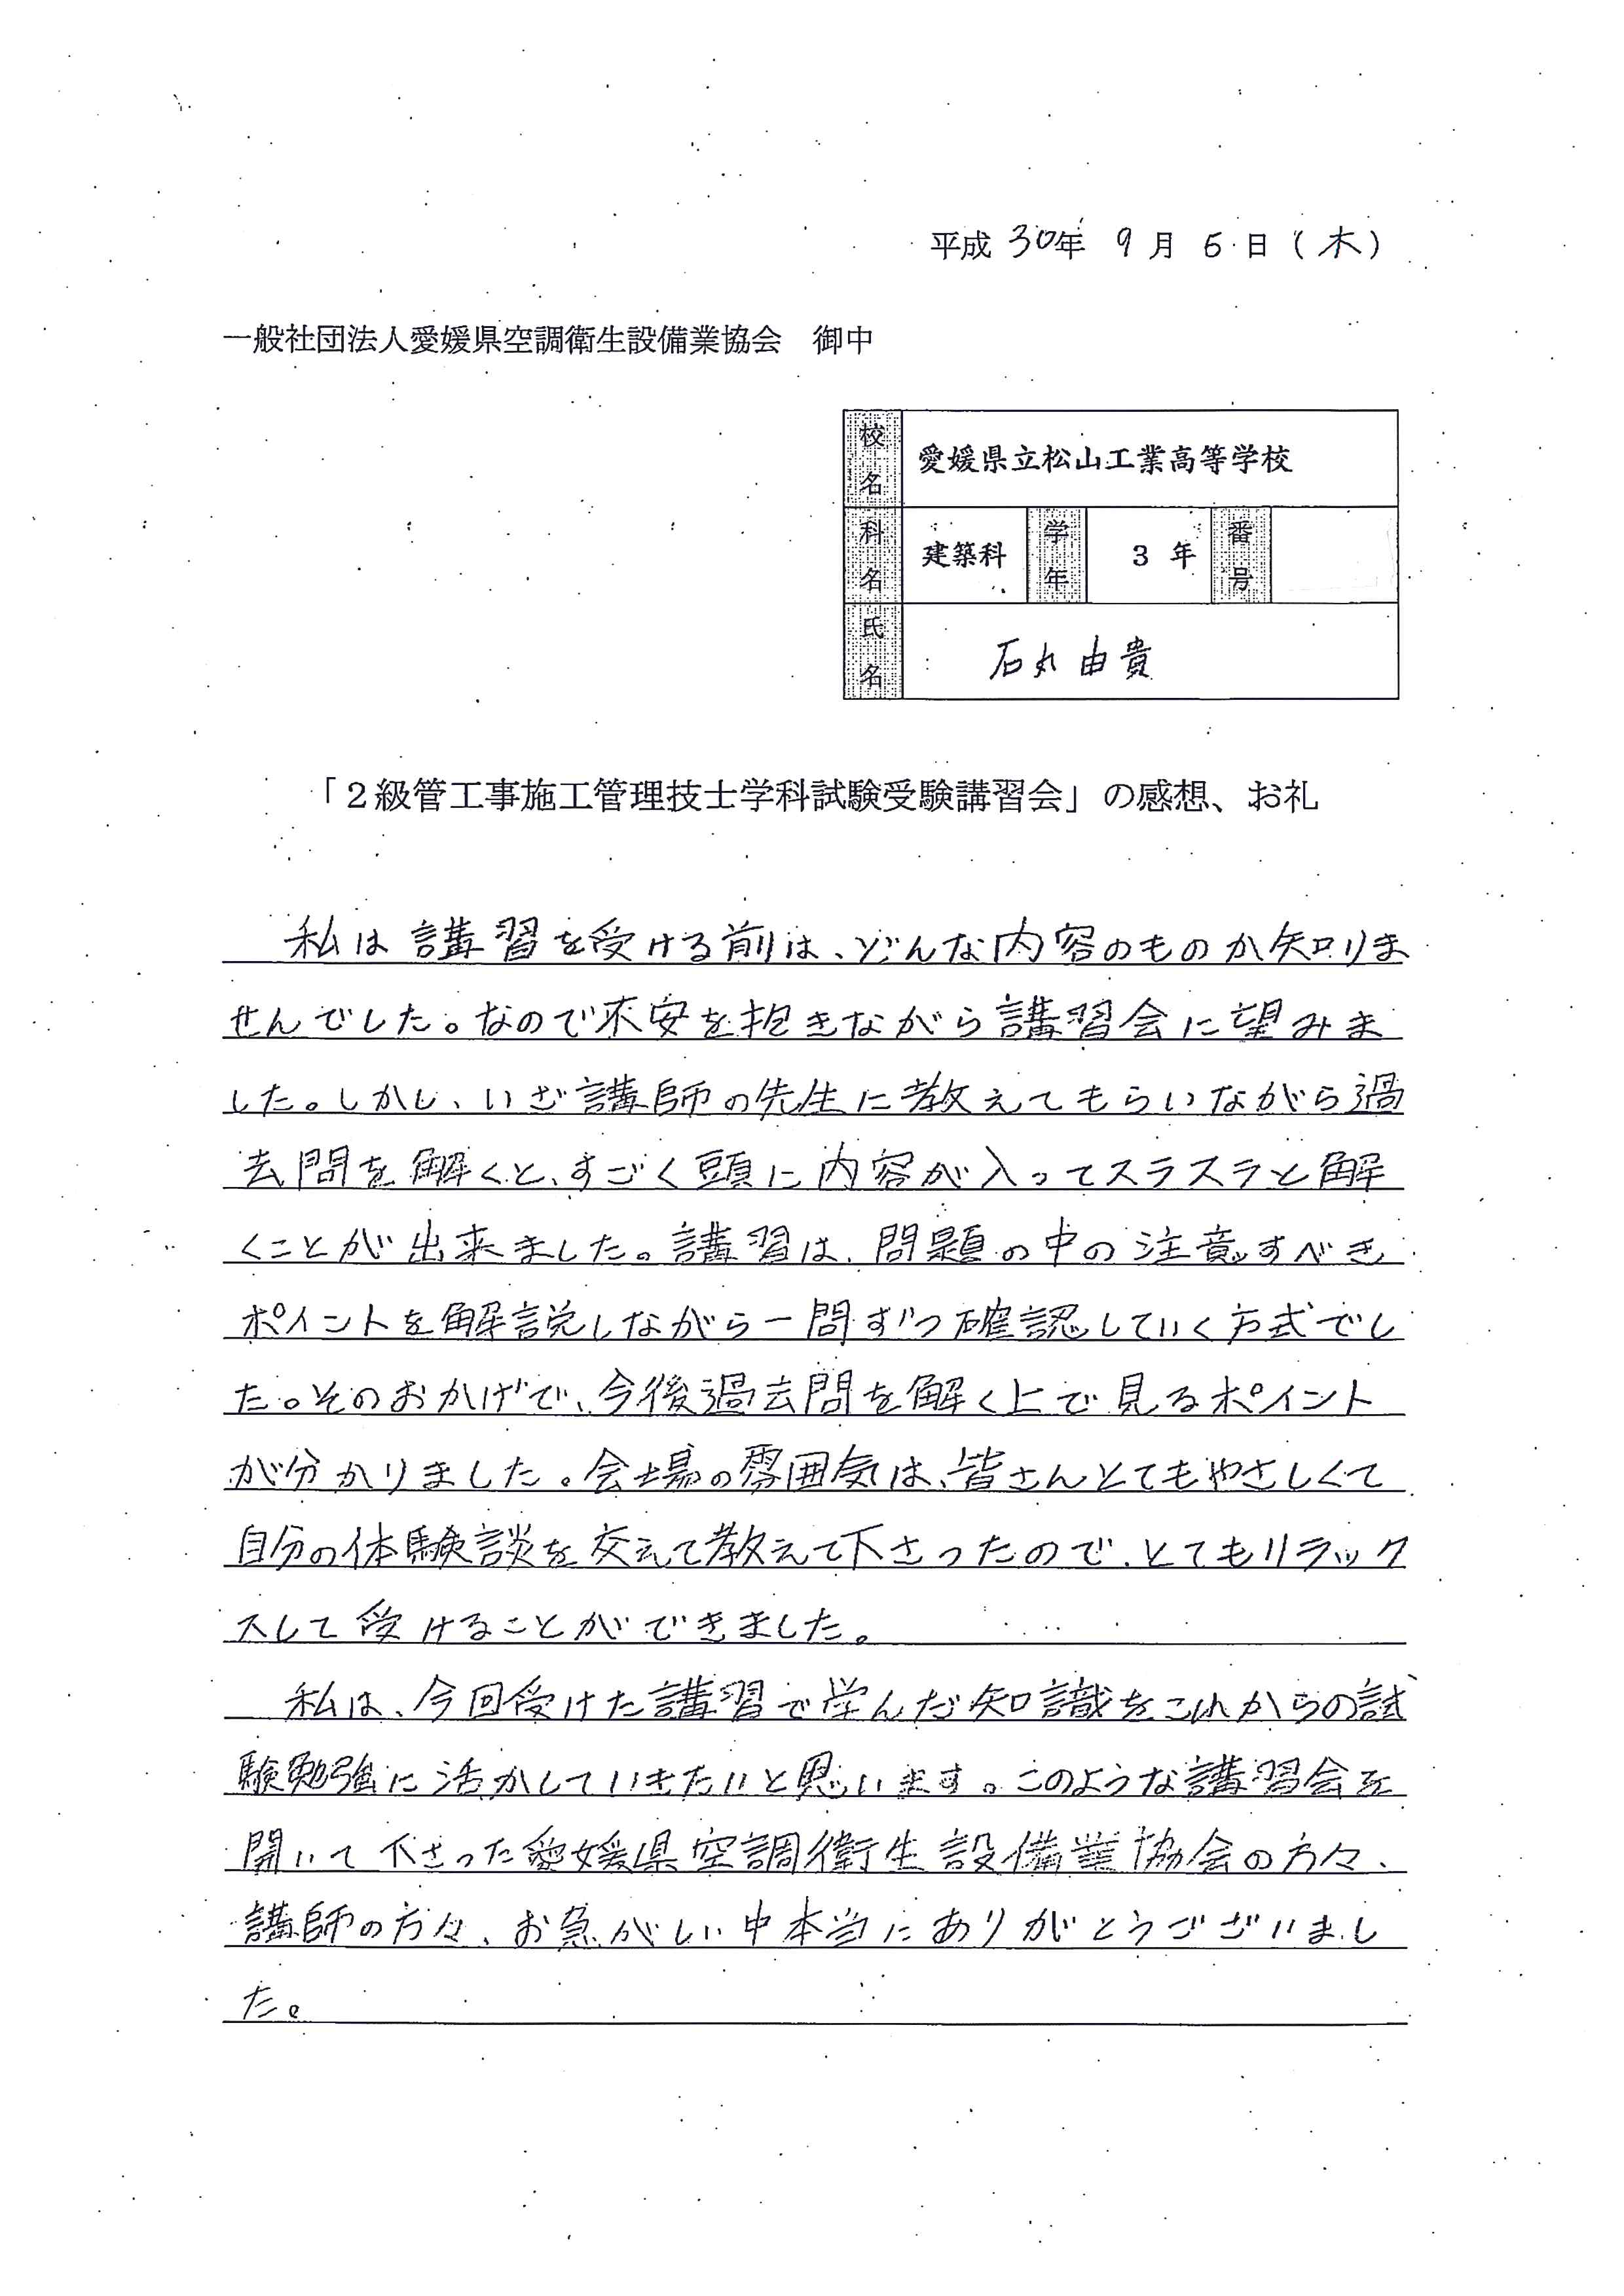 平成 30年 9月 6日(木)
一般社団法人愛媛県空調衛生設備業協会 御中
校名 愛媛県立松山工業高等学校
科名 建築科 学年 3年 番号
氏名 石丸由貴
「2級管工事施工管理技士学科試験受験講習会」の感想、お礼
私は講習を受ける前は、どんな内容のものか知りま
せんでした。なので不安を抱きながら講習会に望みま
した。しかし、いざ講師の先生に教えてもらいながら過
去問を解くと、すごく頭に内容が入ってスラスラと解
くことが出来ました。講習は、問題の中の注意すべき
ポイントを解説しながら一問ずつ確認していく方式でし
た。そのおかげで、今後過去問を解く上で見るポイント
が分かりました。会場の雰囲気は、皆さんとてもやさしくて
自分の体験談を交えて教えて下さったので、とてもリラック
スして受けることができました。
私は、今回受けた講習で学んだ知識をこれからの試
験勉強に活かしていきたいと思います。このような講習会を
開いて下さった愛媛県空調衛生設備業協会の方々、
講師の方々、お急がしい中本当にありがとうございまし
た。